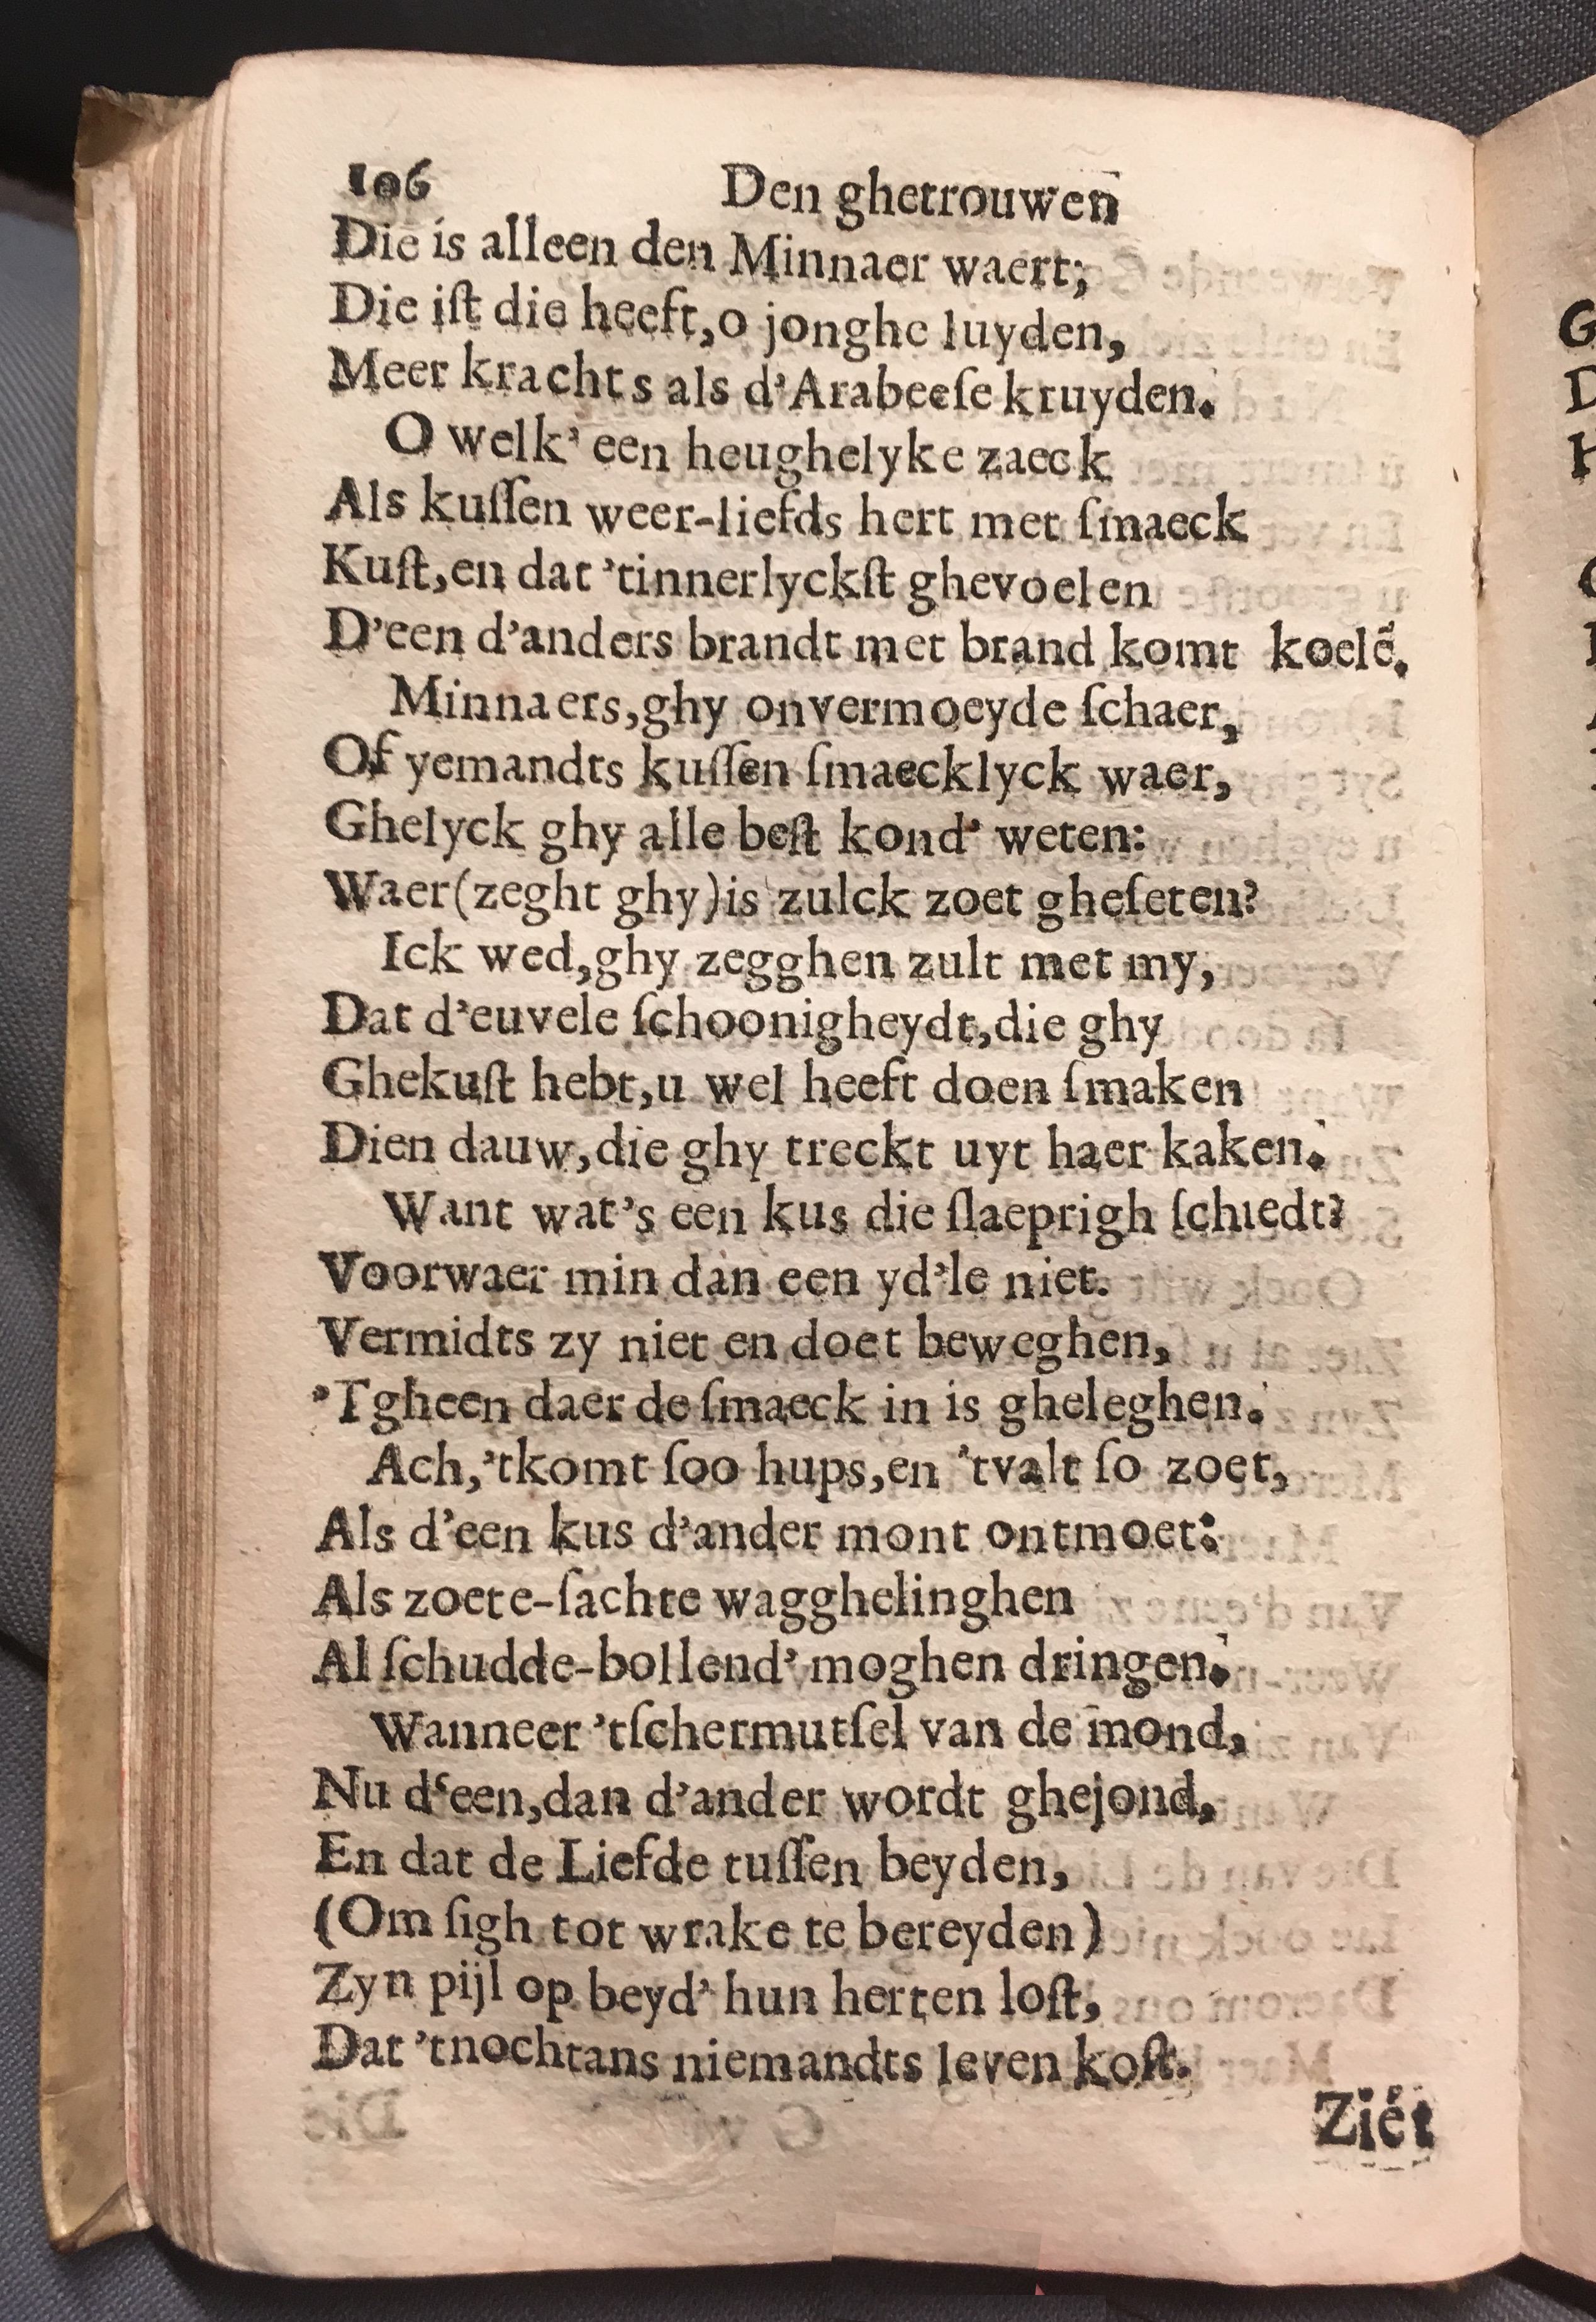 106 Den ghetrouwen
Die is alleen den Minnaer waert;
Die iſt die heeft,o jonghe luyden,
Meer krachts als d'Arabeeſe kruyden.
O welk' een heughelyke zaeck
Als kuſſen weer-liefds hert met ſmaeck
Kuſt,en dat 'tinnerlyckſt ghevoelen
D'een d'anders brandt met brand komt koelẽ.
Minnaers,ghy onvermoeyde ſchaer,
Of yemandts kuſſen ſmaecklyck waer,
Ghelyck ghy alle beſt kond' weten:
Waer(zeght ghy)is zulck zoet gheſeten?
Ick wed,ghy zegghen zult met my,
Dat d'euvele ſchoonigheydt,die ghy
Ghekuſt hebt,u wel heeft doen ſmaken
Dien dauw,die ghy treckt uyt haer kaken.
Want wat's een kus die ſlaeprigh ſchiedt?
Voorwaer min dan een yd'le niet.
Vermidts zy niet en doet beweghen,
'Tgheen daer de ſmaeck in is gheleghen.
Ach,'tkomt ſoo hups,en 'tvalt ſo zoet,
Als d'een kus d'ander mont ontmoet:
Als zoete-ſachte wagghelinghen
Al ſchudde-bollend' moghen dringen.
Wanneer 'tſchermutſel van de mond,
Nu d‘een,dan d'ander wordt ghejond,
En dat de Liefde tuſſen beyden,
(Om ſigh tot wrake te bereyden)
Zyn pijl op beyd' hun herten loſt,
Dat 'tnochtans niemandts leven koſt.
Ziet